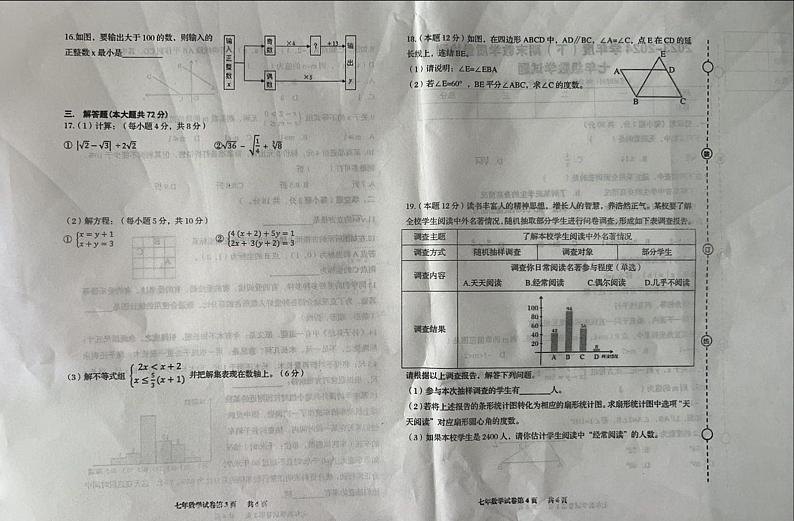 16.如图，要输出大于100的数，则输入的
正整数 x 最小是
输入正整数x
奇数
×4
?
+13
输出y
偶数
×5
三. 解答题(本大题共72分)
17.（1）计算：（每小题4分，共8分）
① |√2 − √3| + 2√2 ②√36 − √(1/4) + ∛8
（2）解方程：（每小题5分，共10分）
① {x = y + 1
x + y = 3
② {4(x + 2) + 5y = 1
2x + 3(y + 2) = 3
（3）解不等式组 {2x < x + 2
x ≤ 5/3(x + 1) 并把解集表现在数轴上。（6分）
七年数学试卷第3页 共6页
18.（本题12分）如图，在四边形 ABCD 中，AD∥BC，∠A=∠C，点 E 在 CD 的延
长线上，连结BE。
（1）请说明：∠E=∠EBA
（2）若∠E=60°，BE 平分∠ABC，求∠C 的度数。
E
A
D
B
C
19.（本题12分）读书丰富人的精神思想，增长人的智慧，养浩然正气。某校要了解
全校学生阅读中外名著情况，随机抽取部分学生进行问卷调查，形成如下表调查报告。
调查主题 了解本校学生阅读中外名著情况
调查方式 随机抽样调查 调查对象 部分学生
调查内容 调查你日常阅读名著参与程度（单选）
A.天天阅读 B.经常阅读 C.偶尔阅读 D.几乎不阅读
调查结果
人数
100
80
60
40
20
0
A B C D
请根据以上调查报告，解答下列问题。
（1）参与本次抽样调查的学生有 人。
（2）若将上述报告的条形统计图转化为相应的扇形统计图，求扇形统计图中选项“天
天阅读”对应扇形圆心角的度数。
（3）如果本校学生是 2400 人，请你估计学生阅读中“经常阅读”的人数。
七年数学试卷第4页 共6页